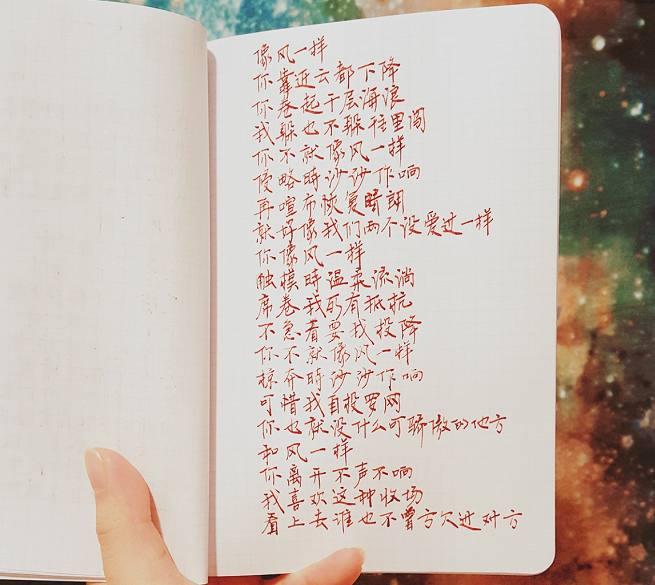 像风一样
你靠近云都下降
你卷起千层海浪
我躲也不躲往里闯
你不就像风一样
侵略時沙沙作响
再喧布恢复晴朗
就好像我们两个没爱过一样
你像风一样
触摸時温柔流淌
席卷我所有抵抗
不急着要我投降
你不就像风一样
掠夺時沙沙作响
可惜我自投罗网
你也就没什么可骄傲的地方
和风一样
你离开不声不响
我喜欢这种收场
看上去谁也不曾亏欠过对方